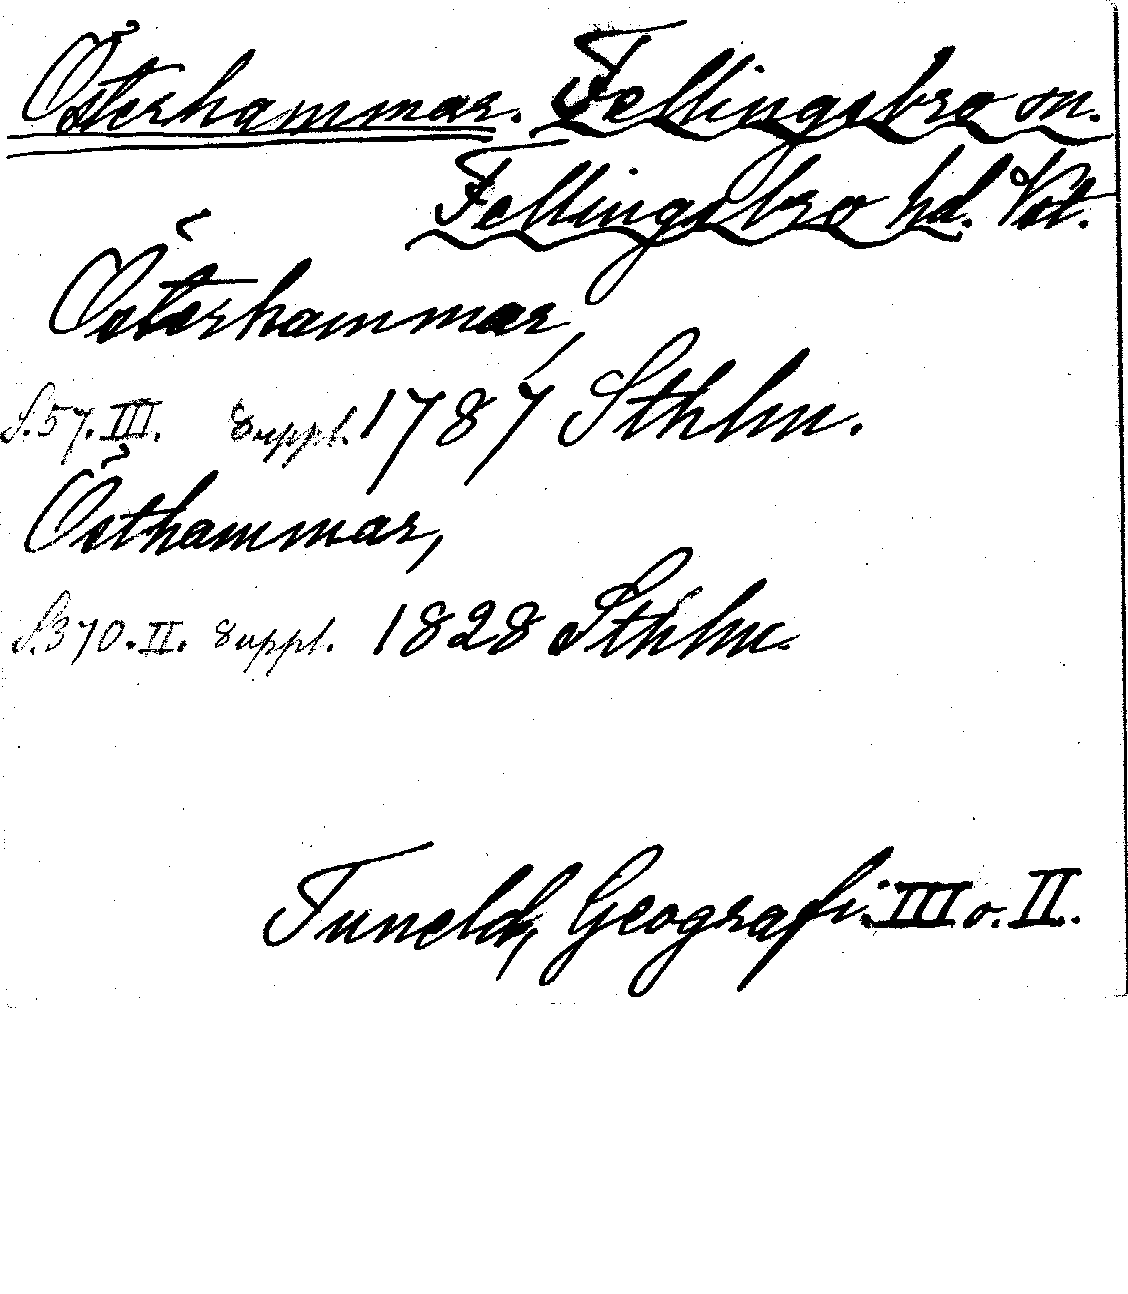 Österhammar. Fellingsbro sn.
Fellingsbro hd. Vstl.
Österhammar,
S. 57. III. Suppl. 1787 Sthlm.
Östhammar,
S. 370. II. Suppl. 1828 Sthlm.
Tuneld, Geografi. III o. II.